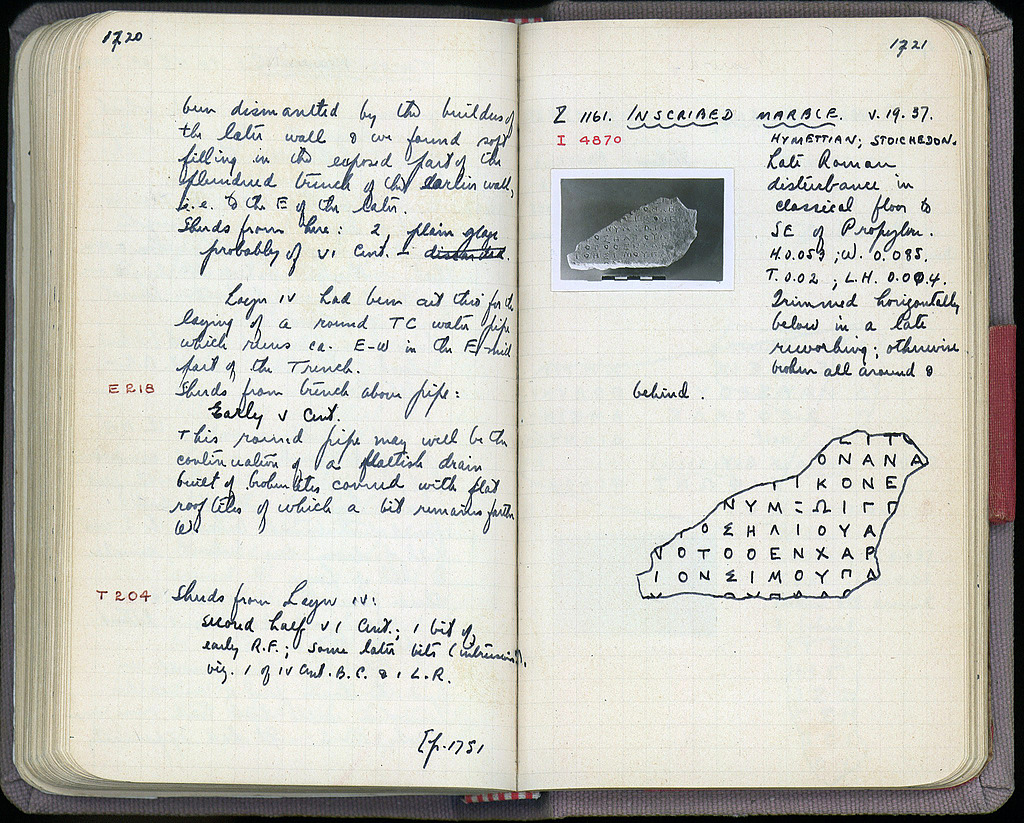 1720
been dismantled by the builders of
the later wall & we found soft
filling in the exposed part of the
plundered trench of the earlier wall,
i.e. to the E of the later.
Sherds from here: 2, plain glaze
probably of VI Cent. – discarded.
Layer IV had been cut thro' for the
laying of a round TC water pipe
which runs ca. E-W in the E
part of the Trench.
E 218 Sherds from trench above pipe:
Early V Cent.
This round pipe may well be the
continuation of a flattish drain
built of broken tiles covered with flat
roof tiles of which a bit remains farther
W.
T 204 Sherds from Layer IV:
second half VI Cent.; 1 bit of
early R.F.; some later bits (intrusive?),
viz. 1 of IV Cent. B.C. & 1 L.R.
[p. 1751
1721
Σ 1161. INSCRIBED MARBLE. V.19.37.
I 4870
HYMETTIAN; STOICHEDON.
Late Roman
disturbance in
classical floor to
SE of Propylon.
H. 0.053; W. 0.085.
T. 0.02; L.H. 0.004.
Trimmed horizontally
below in a late
reworking; otherwise
broken all around &
behind.
ΟΝΑΝΑ
ΙΚΟΝΕ
ΝΥΜΞΩΙΓΓ
ΟΣΗΛΙΟΥΑ
ΟΤΟΟΕΝΧΑΡ
ΙΟΝΣΙΜΟΥΠΑ